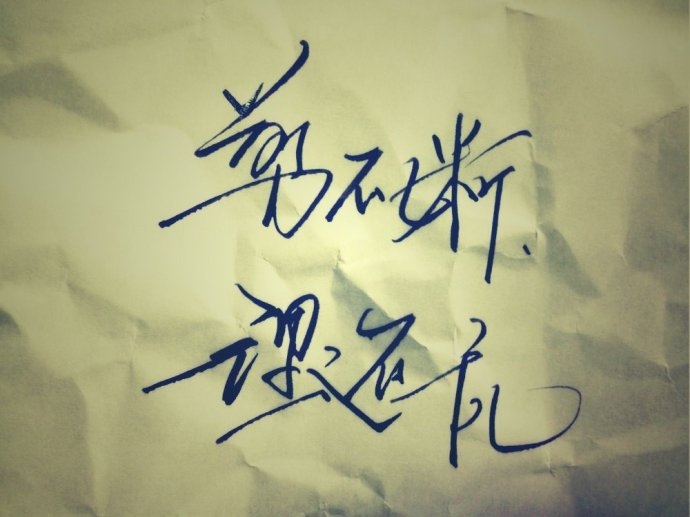 剪不断、
理还乱